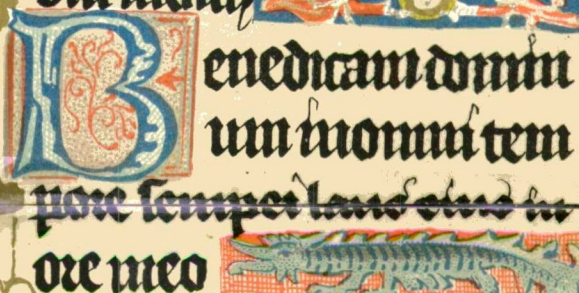 Benedicam domin
um in omni tem
pore semper laus eius in
ore meo